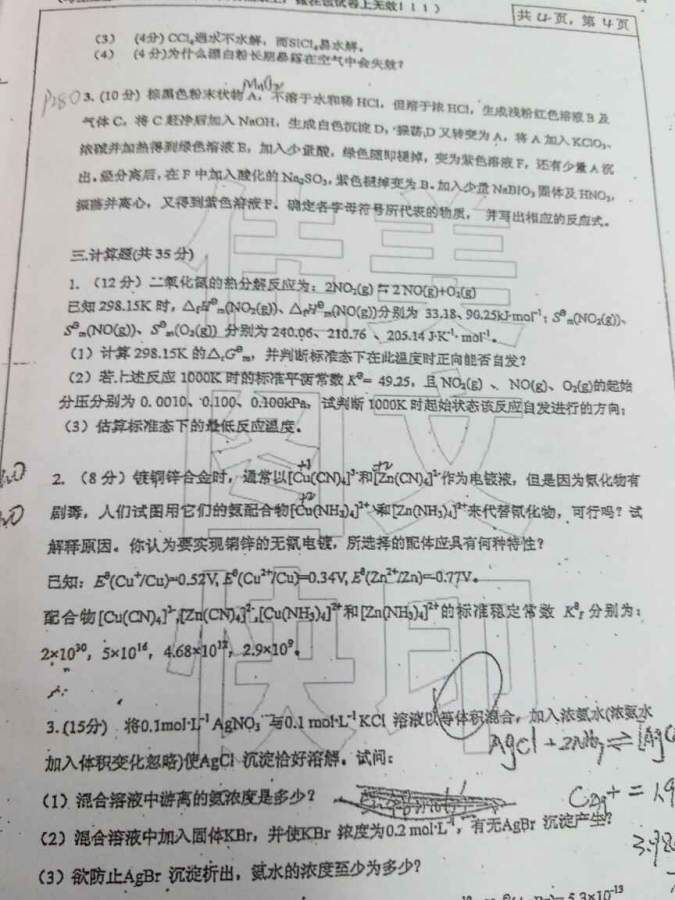 共 4 页，第 4 页
（3） (4分) CCl₄遇水不水解，而SiCl₄易水解。
（4） (4 分)为什么漂白粉长期暴露在空气中会失效？
MnO₂
P280 3. (10 分) 棕黑色粉末状物 A，不溶于水和稀 HCl，但溶于浓 HCl，生成浅粉红色溶液 B 及
气体 C，将 C 赶净后加入 NaOH，生成白色沉淀 D，振荡,D 又转变为 A，将 A 加入 KClO₃、
浓碱并加热得到绿色溶液 E，加入少量酸，绿色随即褪掉，变为紫色溶液 F，还有少量 A 沉
出，经分离后，在 F 中加入酸化的 Na₂SO₃，紫色褪掉变为 B。加入少量 NaBiO₃ 固体及 HNO₃，
振荡并离心，又得到紫色溶液 F。确定各字母符号所代表的物质， 并写出相应的反应式。
三.计算题(共 35 分)
1. （12 分）二氧化氮的热分解反应为：2NO₂(g) ⇆ 2 NO(g)+O₂(g)
已知 298.15K 时，△fHᶿm(NO₂(g))、△fHᶿm(NO(g))分别为 33.18、90.25kJ·mol⁻¹；Sᶿm(NO₂(g))、
Sᶿm(NO(g))、Sᶿm(O₂(g)) 分别为 240.06、210.76 、205.14 J·K⁻¹·mol⁻¹。
（1）计算 298.15K 的△rGᶿm，并判断标准态下在此温度时正向能否自发？
（2）若上述反应 1000K 时的标准平衡常数 Kᶿ= 49.25，且 NO₂(g) 、 NO(g)、O₂(g)的起始
分压分别为 0.0010、0.100、0.100kPa，试判断 1000K 时起始状态该反应自发进行的方向；
（3）估算标准态下的最低反应温度。
+1 +2
2. （8 分）镀铜锌合金时，通常以[Cu(CN)₄]³⁻和[Zn(CN)₄]²⁻作为电镀液，但是因为氰化物有
+2
剧毒，人们试图用它们的氨配合物[Cu(NH₃)₄]²⁺和[Zn(NH₃)₄]²⁺来代替氰化物，可行吗？试
解释原因。你认为要实现铜锌的无氰电镀，所选择的配体应具有何种特性？
已知：Eᶿ(Cu⁺/Cu)=0.52V, Eᶿ(Cu²⁺/Cu)=0.34V, Eᶿ(Zn²⁺/Zn)=-0.77V。
配合物 [Cu(CN)₄]³⁻,[Zn(CN)₄]²⁻,[Cu(NH₃)₄]²⁺ 和 [Zn(NH₃)₄]²⁺ 的标准稳定常数 Kᶿf 分别为：
2×10³⁰，5×10¹⁶，4.68×10¹²，2.9×10⁹。
3. (15分) 将0.1mol·L⁻¹ AgNO₃ 与0.1 mol·L⁻¹ KCl 溶液以等体积混合，加入浓氨水(浓氨水
加入体积变化忽略)使AgCl 沉淀恰好溶解。试问：
AgCl + 2NH₃ ⇌ [Ag
（1）混合溶液中游离的氨浓度是多少？
（2）混合溶液中加入固体KBr，并使KBr 浓度为0.2 mol·L⁻¹，有无AgBr 沉淀产生？
（3）欲防止AgBr 沉淀析出，氨水的浓度至少为多少？
佳美
图文
快印